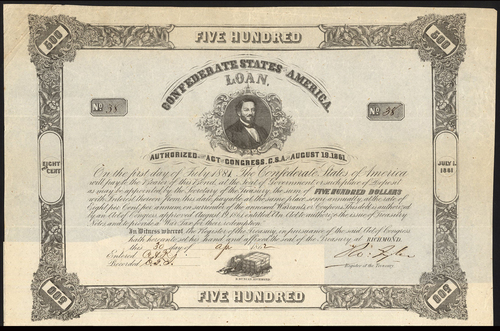 FIVE HUNDRED
500
500
CONFEDERATE STATES OF AMERICA.
LOAN,
No 38
No 38
AUTHORIZED BY ACT OF CONGRESS, C.S.A. OF AUGUST 19, 1861.
EIGHT PR CENT
JULY 1. 1881
On the first day of July 1881 The Confederate States of America
will pay to the Bearer of this Bond, at the Seat of Government or such place of Deposit
as may be appointed by the Secretary of the Treasury, the sum of FIVE HUNDRED DOLLARS
with Interest thereon from this date, payable at the same place semi annually, at the rate of
Eight per Cent per annum
an Act of Congress approved August 19, 1861 entitled An Act to authorize the issue of Treasury
Notes and to provide a War Tax for their redemption
In Witness whereof, the Register of the Treasury, in pursuance of the said Act of Congress
hath hereunto set his hand and affixed the seal of the Treasury at RICHMOND.
this 30 day of Apr 1862
Entered
Recorded
Ro. Tyler
Register of the Treasury
500
FIVE HUNDRED
500